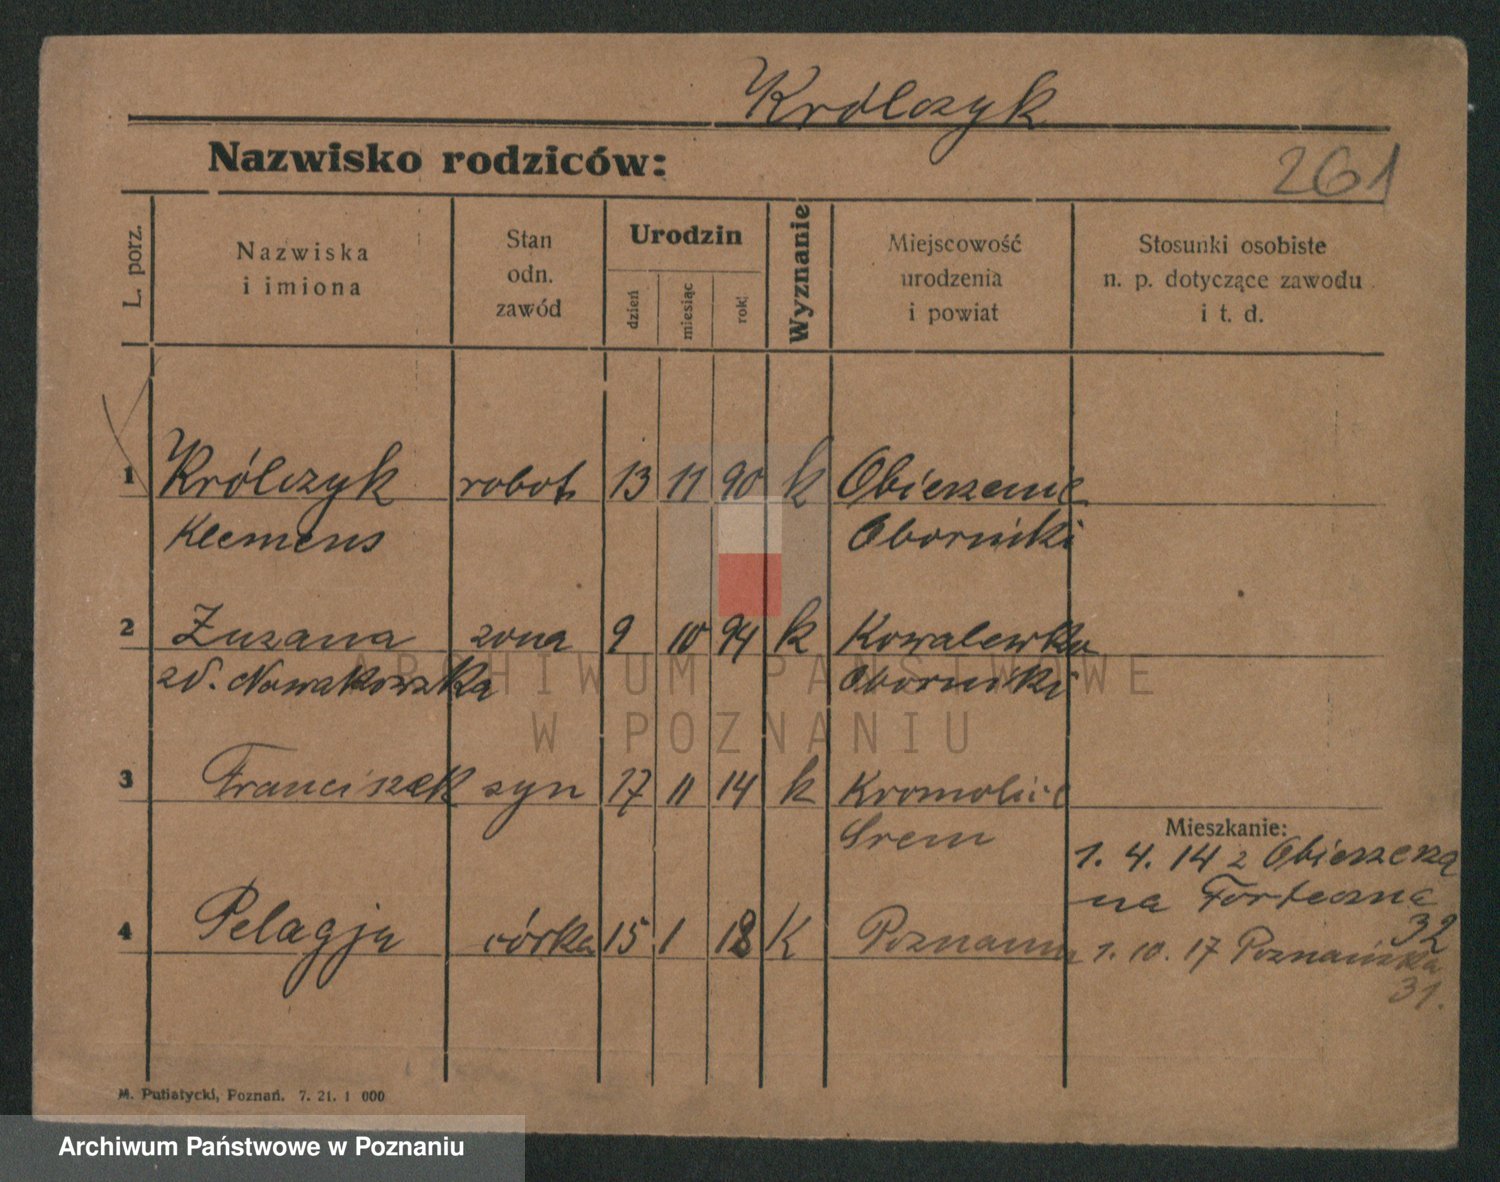 Królczyk
Nazwisko rodziców:
261
L. porz.
Nazwiska
i imiona
Stan
odn.
zawód
Urodzin
dzień
miesiąc
rok
Wyznanie
Miejscowość
urodzenia
i powiat
Stosunki osobiste
n. p. dotyczące zawodu
i t. d.
1 Królczyk robot. 13 11 90 k
Klemens Oborniki
2 Zuzana zona 9 10 94 k Kowalewko
zd. Nowakowska Oborniki
3 Franciszek syn 17 11 14 k Kromolice
Srem
Mieszkanie:
1. 4. 14 z
na Forteczna
32
4 Pelagja córka 15 1 18 K
1. 10. 17 Poznańska
31.
ARCHIWUM PAŃSTWOWE
W POZNANIU
M. Putiatycki, Poznań. 7. 21. 1 000
Archiwum Państwowe w Poznaniu